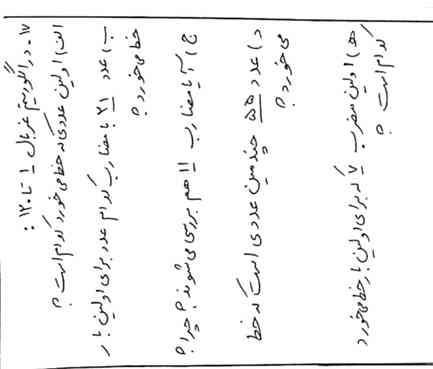 ۱۷ـ در الگوریتم غربال ۱ تا ۱۲۰ :
الف) اولین عددی که خط می خورد کدام است ؟
ب) عدد ۲۱ با مضارب کدام عدد برای اولین بار
خط می خورد ؟
ج) آیا مضارب ۱۱ هم بررسی می شوند ؟ چرا ؟
د) عدد ۵۵ چندمین عددی است که خط
می خورد ؟
هـ) اولین مضرب ۷ که برای اولین بار خط می خورد
کدام است ؟